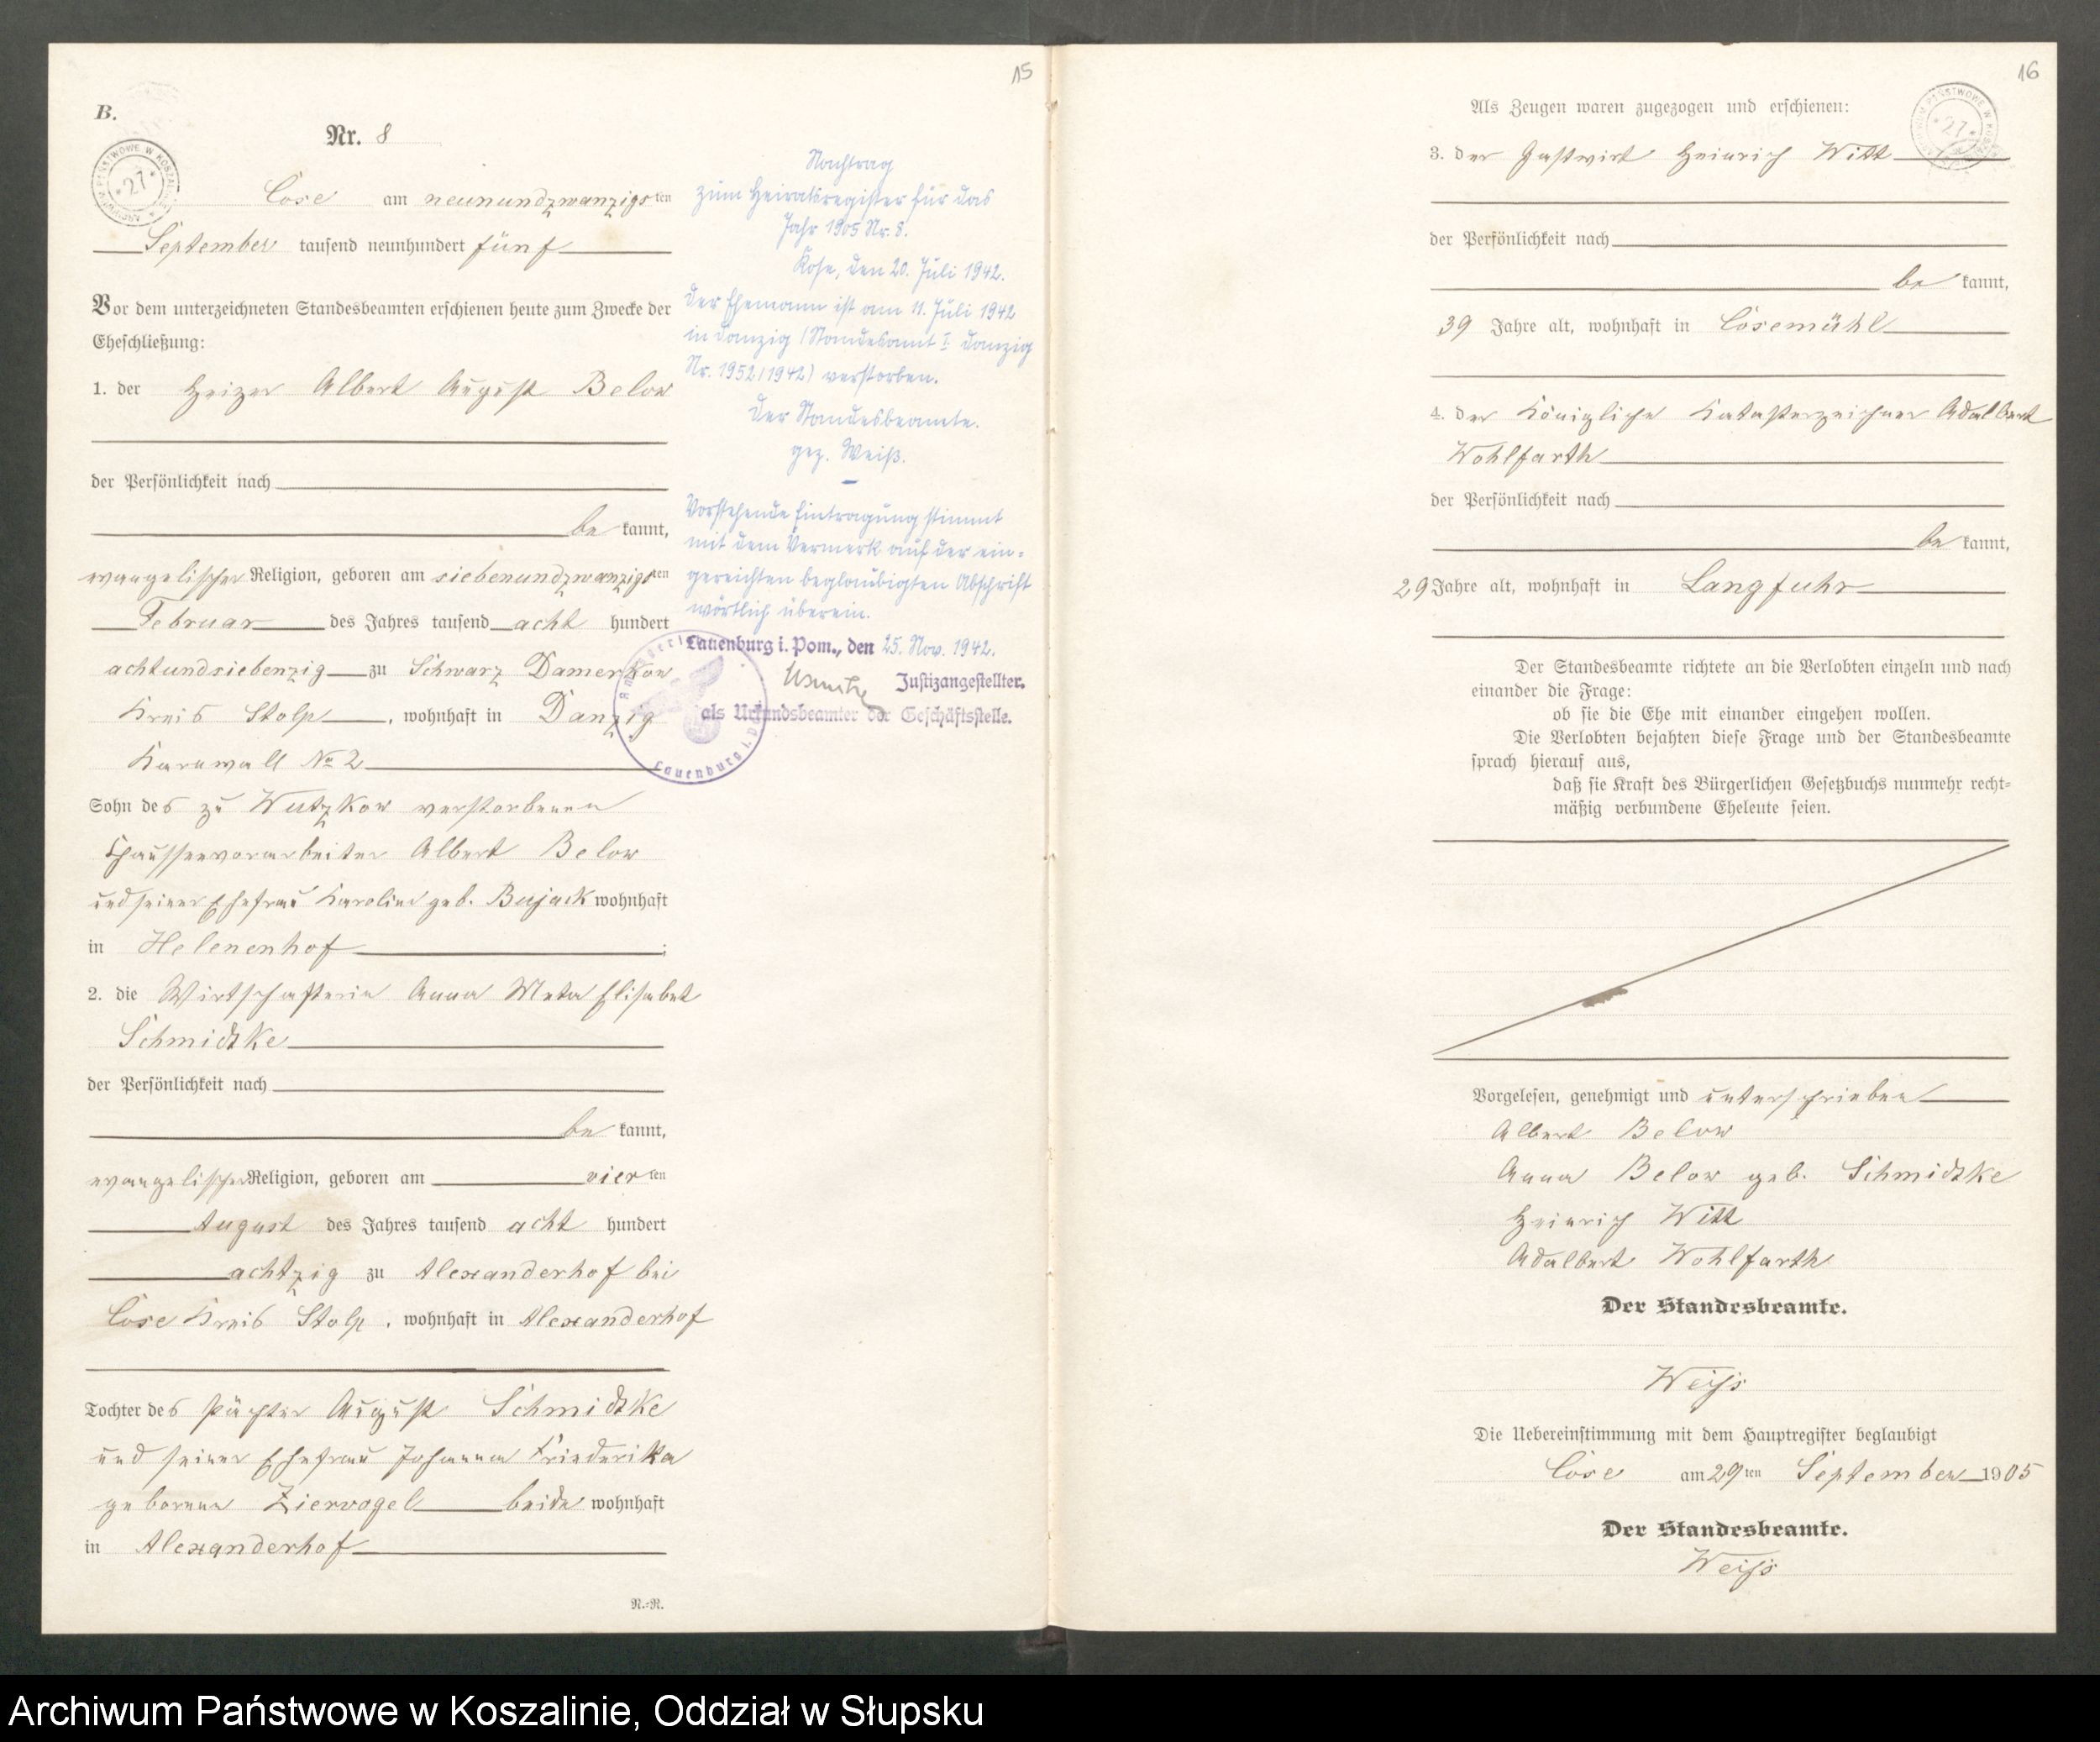 15
B.
Nr. 8
Cose am neunundzwanzigsten
September tausend neunhundert fünf
Vor dem unterzeichneten Standesbeamten erschienen heute zum Zwecke der
Eheschließung:
1. der Heizer Albert August Below
der Persönlichkeit nach
be kannt,
evangelischer Religion, geboren am siebenundzwanzigsten
Februar des Jahres tausend acht hundert
achtundsiebenzig zu Schwarz Damerkow
Kreis Stolp, wohnhaft in Danzig
Karnwall No 2
Sohn des zu Wutzkow verstorbenen
Chausseevorarbeiter Albert Below
und seiner Ehefrau Karoline geb. Bujack wohnhaft
in Helenenhof;
2. die Wirtschafterin Anna Meta Elisabet
Schmidtke
der Persönlichkeit nach
be kannt,
evangelischer Religion, geboren am vierten
August des Jahres tausend acht hundert
achtzig zu Alexanderhof bei
Cose Kreis Stolp, wohnhaft in Alexanderhof
Tochter des Pächter August Schmidtke
und seiner Ehefrau Johanna Friederika
geborene Ziervogel beide wohnhaft
in Alexanderhof
N.=N.
Nachtrag
zum Heiratsregister für das
Jahr 1905 Nr. 8.
Kose, den 20. Juli 1942.
Der Ehemann ist am 11. Juli 1942
in Danzig (Standesamt I Danzig
Nr. 1952/1942) verstorben.
Der Standesbeamte.
gez. Weiß.
Vorstehende Eintragung stimmt
mit dem Vermerk auf der ein=
gereichten beglaubigten Abschrift
wörtlich überein.
Lauenburg i. Pom., den 25. Nov. 1942.
Justizangestellter.
als Urkundsbeamter der Geschäftsstelle.
Amtsgericht
Lauenburg i. P
16
Als Zeugen waren zugezogen und erschienen:
3. der Gastwirt Heinrich Witt
der Persönlichkeit nach
be kannt,
39 Jahre alt, wohnhaft in Cosemühl
4. der Königliche Katasterzeichner Adalbert
Wohlfarth
der Persönlichkeit nach
be kannt,
29 Jahre alt, wohnhaft in Langfuhr
Der Standesbeamte richtete an die Verlobten einzeln und nach
einander die Frage:
ob sie die Ehe mit einander eingehen wollen.
Die Verlobten bejahten diese Frage und der Standesbeamte
sprach hierauf aus,
daß sie Kraft des Bürgerlichen Gesetzbuchs nunmehr recht=
mäßig verbundene Eheleute seien.
Vorgelesen, genehmigt und unterschrieben
Albert Below
Anna Below geb. Schmidtke
Heinrich Witt
Adalbert Wohlfarth
Der Standesbeamte.
Weiß
Die Uebereinstimmung mit dem Hauptregister beglaubigt
Cose am 29ten September 1905
Der Standesbeamte.
Weiß
Archiwum Państwowe w Koszalinie, Oddział w Słupsku